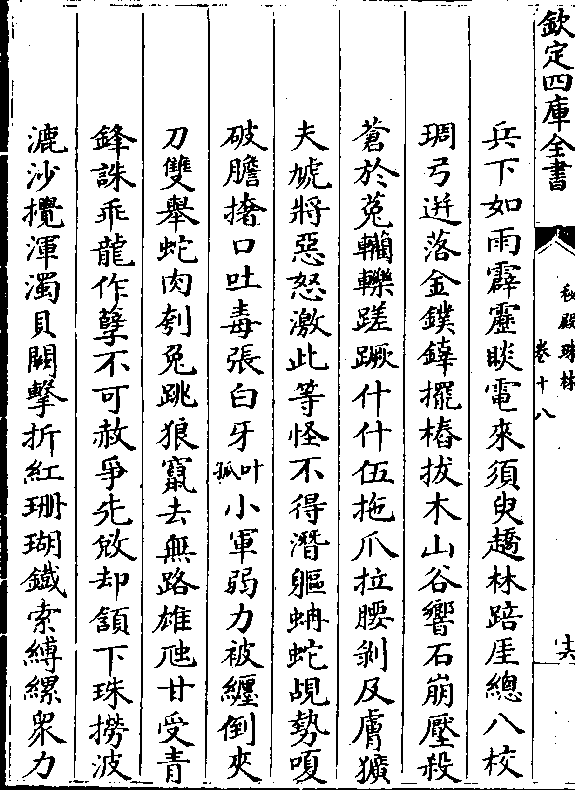 欽定四庫全書
秘殿珠林
卷十八
六
兵下如雨霹靂睒電來須臾趫林踣厓總八校
琱弓迸落金鏷鋂擺樁拔木山谷響石崩壓殺
蒼於菟轥轢蹉蹶什什伍拖爪拉腰剝及膚獷
夫虓將惡怒激此等怪不得潛軀蚺蛇覘勢嗄
破膽撦口吐毒張白牙叶孤小軍弱力被纏倒夾
刀雙舉蛇肉刳兔跳狼竄去無路雄虺甘受青
鋒誅乖龍作孽不可赦爭先斂却頷下珠撈波
漉沙攪渾濁貝闕擊折紅珊瑚鐵索縛縲衆力